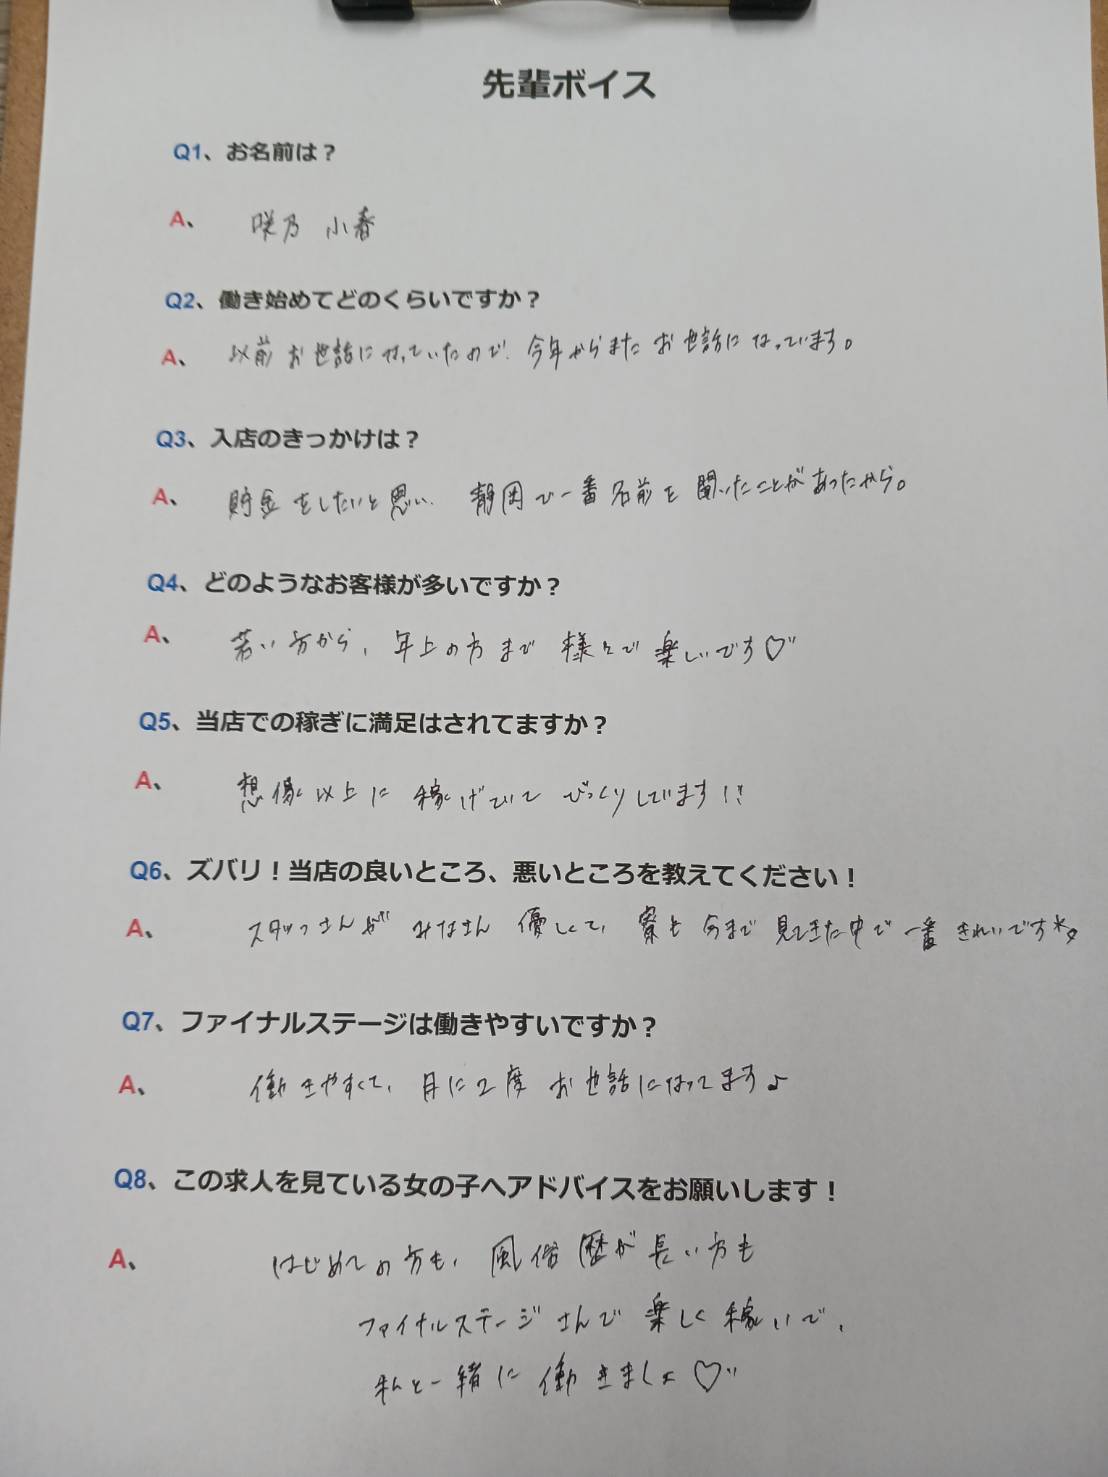 先輩ボイス
Q1、お名前は？
A、 咲乃 小春
Q2、働き始めてどのくらいですか？
A、 以前お世話になっていたので、今年からまたお世話になっています。
Q3、入店のきっかけは？
A、 貯金をしたいと思い、静岡で一番名前を聞いたことがあったから。
Q4、どのようなお客様が多いですか？
A、 若い方から、年上の方まで様々で楽しいです♡
Q5、当店での稼ぎに満足はされてますか？
A、 想像以上に稼げていてびっくりしています!!
Q6、ズバリ！当店の良いところ、悪いところを教えてください！
A、 スタッフさんがみなさん優しくて、寮も今まで見てきた中で一番きれいです
Q7、ファイナルステージは働きやすいですか？
A、 働きやすくて、月に2度お世話になってます♪
Q8、この求人を見ている女の子へアドバイスをお願いします！
A、 はじめての方も、風俗歴が長い方も
ファイナルステージさんで楽しく稼いで、
私と一緒に働きましょ♡